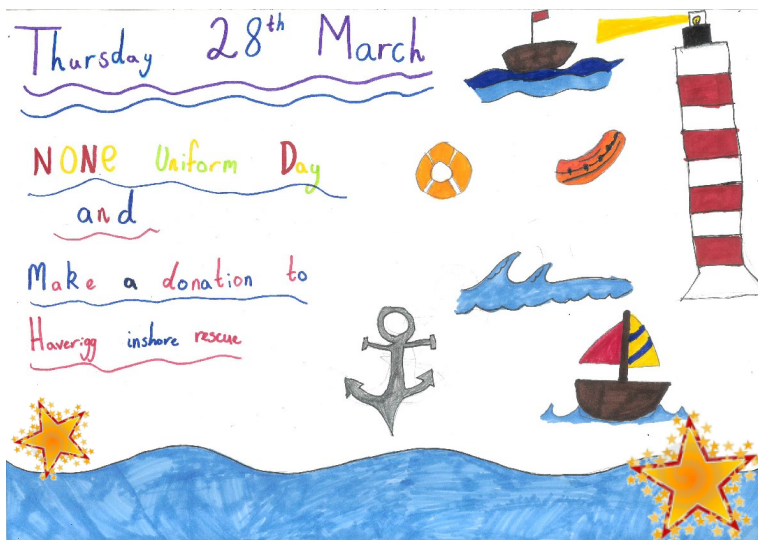 Thursday 28th March
NONe Uniform Day
and
Make a donation to
Haverigg inshore rescue